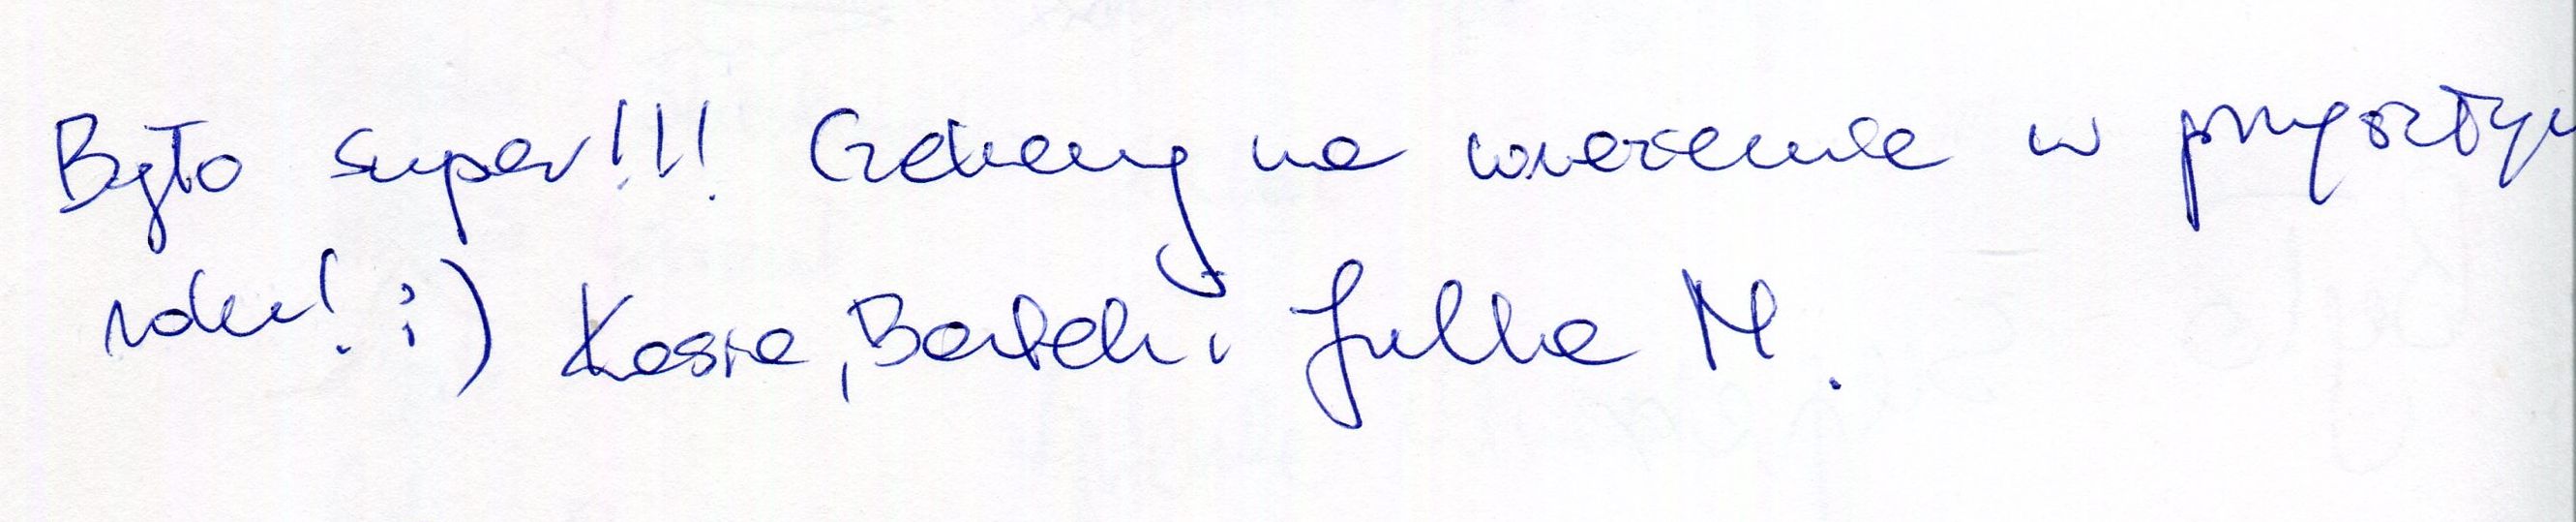 Było super!!! Czekamy na wrażenia w przyszłym
roku! ;) Kasia, Bartek i Julka M.